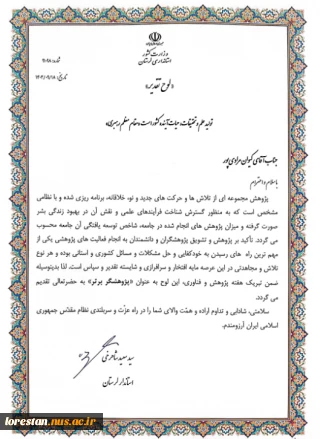 وزارت کشور
استانداری لرستان
«لوح تقدیر»
تولید علم و تحقیقات، حیات آینده کشور است «مقام معظم رهبری»
جناب آقای کیوان مرادی پور
با سلام و احترام
پژوهش مجموعه ای از تلاش ها و حرکت های جدید و نو، خلاقانه، برنامه ریزی شده و با نظامی
مشخص است که به منظور گسترش شناخت فرآیندهای علمی و نقش آن در بهبود زندگی بشر
صورت گرفته و میزان پژوهش های انجام شده در جامعه، شاخص توسعه یافتگی آن جامعه محسوب
می گردد. تأکید بر پژوهش و تشویق پژوهشگران و دانشمندان به انجام فعالیت های پژوهشی یکی از
مهم ترین راه های رسیدن به خودکفایی و حل مشکلات و مسائل کشوری و استانی بوده و هر نوع
تلاش و مجاهدتی در این عرصه مایه افتخار و سرافرازی و شایسته تقدیر و سپاس است. لذا بدینوسیله
ضمن تبریک هفته پژوهش و فناوری، این لوح به عنوان «پژوهشگر برتر» به حضرتعالی تقدیم
می گردد.
سلامتی، شادابی و تداوم اراده و همّت والای شما را در راه عزّت و سربلندی نظام مقدّس جمهوری
اسلامی ایران آرزومندم.
سید سعید شاهرخی
استاندار لرستان
lorestan.nus.ac.ir